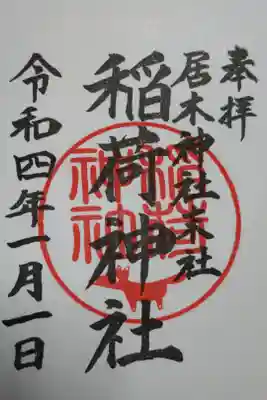 奉拝
居木神社末社
稲荷神社
令和四年一月一日